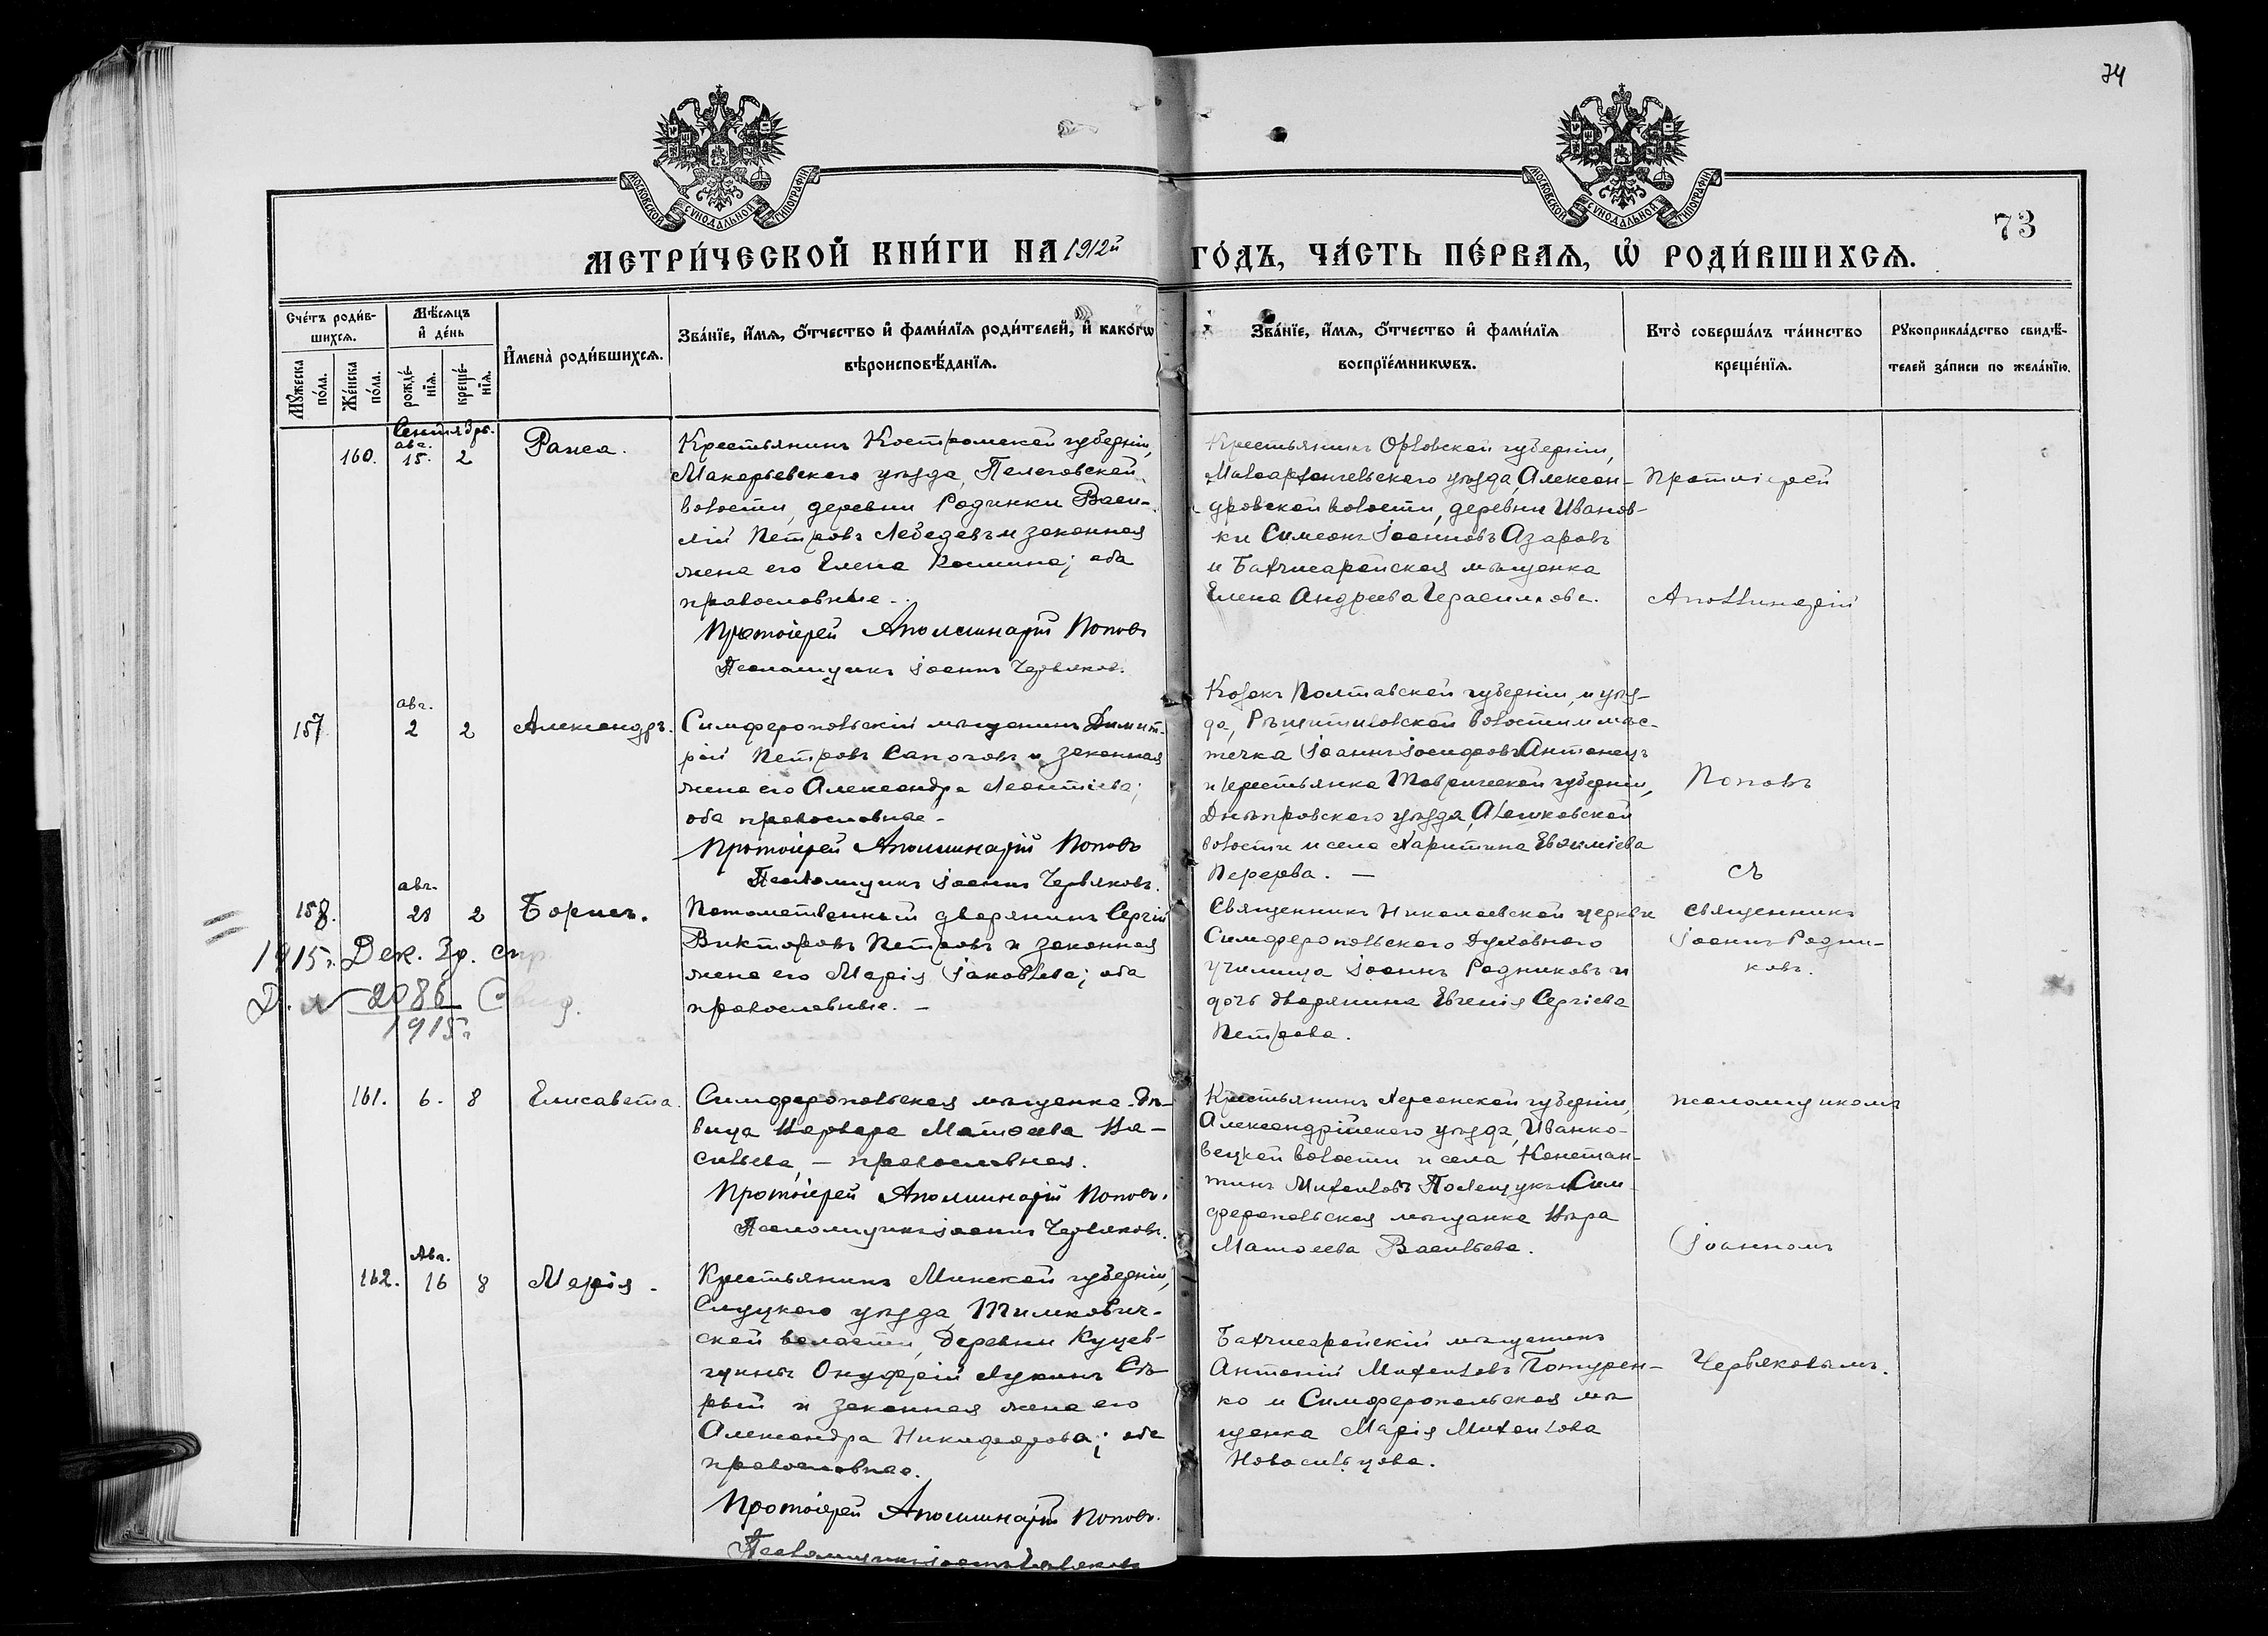 74
МОСКОВСКОЙ СѴНОДАЛЬНОЙ ТИПОГРАФІИ
МОСКОВСКОЙ СѴНОДАЛЬНОЙ ТИПОГРАФІИ
73
МЕТРИ́ЧЕСКОЙ КНИ́ГИ НА 1912й ГО́ДЪ, ЧА́СТЬ ПЕ́РВАЯ, Ѽ РОДИ́ВШИХСЯ.
Сче́тъ роди́в-
шихся.
Мꙋ́жеска по́ла.
Же́нска по́ла.
Мѣ́сяцъ
и҆ де́нь
рожде́-
нїя.
креще́-
нїя.
И҆мена̀ роди́вшихся.
Зва́нїе, и҆́мя, о҆́тчество и҆ фами́лїя роди́телей, и҆ како́гѡ
вѣроисповѣ́данїя.
Зва́нїе, и҆́мя, о҆́тчество и҆ фами́лїя
воспрїе́мникѡвъ.
Кто̀ соверша́лъ та́инство
креще́нїя.
Рꙋкоприкла́дство свидѣ́-
телей за́писи по жела́нїю.
Сентябрь.
авг.
160. 15. 2 Раиса.
Крестьянинъ Костромской губерніи,
Макарьевскаго уѣзда,
волости, деревни Родинки Васи-
лій Петровъ Лебедевъ и законная
жена его Елена Космина; оба
православные.
Протоіерей Аполлинарій Поповъ
Псаломщикъ Іоаннъ Червяковъ.
Крестьянинъ Орловской губерніи,
Малоархангельскаго уѣзда, Алексан-
дровской волости, деревни Иванов-
ки Симеонъ Іоанновъ Азаровъ
и Бахчисарайская мѣщанка
Елена Андреева Герасимова.
Протоіерей
Аполлинарій
авг.
157 2 2 Александръ.
Симферопольскій мѣщанинъ Димит-
рій Петровъ Сапоговъ и законная
жена его Александра Леонтіева;
оба православные -
Протоіерей Аполлинарій Поповъ
Псаломщикъ Іоаннъ Червяковъ.
Козакъ Полтавской губерніи, и уѣз-
да, Рѣшетиловской волости и мѣс-
течка Іоаннъ Іосифовъ Антонецъ
и крестьянка Таврической губерніи,
Днѣпровскаго уѣзда, Алешковской
волости и села Харитина Евфиміева
Перерва. —
Поповъ
съ
авг.
158. 21 2 Борисъ.
Потомственный дворянинъ Сергій
Викторовъ Петровъ и законная
жена его Марія Іаковлева; оба
православные. —
Священникъ Николаевской церкви
Симферопольскаго Духовнаго
училища Іоаннъ Родниковъ и
дочь дворянина Евгенія Сергіева
Петрова.
священникъ
Іоаннъ Родни-
ковъ.
1915 г. Дек. 3 д.
Д. № 2086
1915 г.
161. 6. 8 Елисавета.
Симферопольская мѣщанка дѣ-
вица Варвара Матѳеева Ва-
сильева, — православная.
Протоіерей Аполлинарій Поповъ.
Псаломщикъ Іоаннъ Червяковъ.
Крестьянинъ Херсонской губерніи,
Александрійскаго уѣзда, Иванко-
вецкой волости и села Констан-
тинъ Михаиловъ Полещукъ и Сим-
феропольская мѣщанка Вѣра
Матѳеева Васильева.
псаломщикомъ
Іоанномъ
Авг.
162. 16 8 Марія.
Крестьянинъ Минской губерніи,
Слуцкаго уѣзда, Тимкович-
ской волости, деревни Куцев-
Онуфрій Лукинъ Сѣ-
рый и законная жена его
Александра Никифорова; оба
православные.
Протоіерей Аполлинарій Поповъ.
Псаломщикъ Іоаннъ Червяковъ
Бахчисарайскій мѣщанинъ
Антоній Михаиловъ Потурен-
ко и Симферопольская мѣ-
щанка Марія Михаилова
Новосильцова.
Червяковымъ.